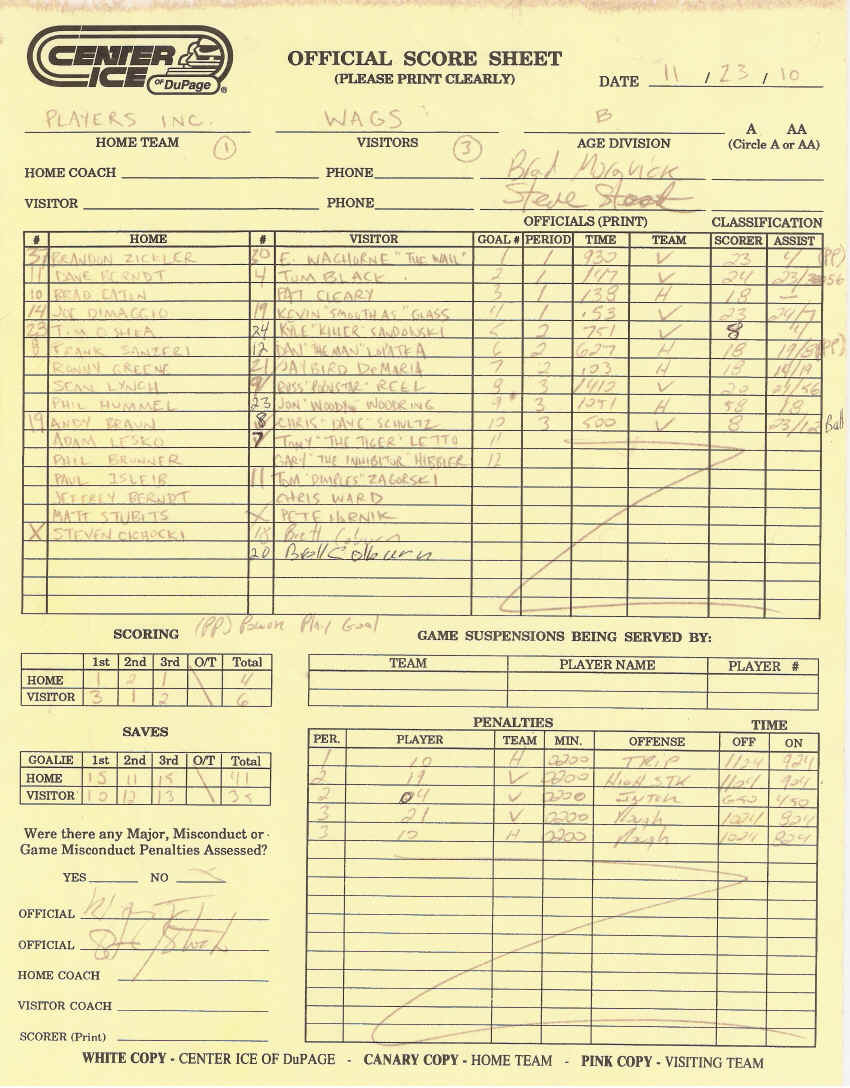 CENTER ICE OF DuPAGE ®
OFFICIAL SCORE SHEET
(PLEASE PRINT CLEARLY)
DATE 11 / 23 / 10
PLAYERS INC. WAGS B
HOME TEAM 1 VISITORS 3 AGE DIVISION A AA (Circle A or AA)
HOME COACH PHONE Brad
VISITOR PHONE Steve
OFFICIALS (PRINT) CLASSIFICATION
# HOME # VISITOR GOAL # PERIOD TIME TEAM SCORER ASSIST
BRANDON ZICKLER 30 E. WAGHORNE "THE WALL" 1 1 930 V 23 4/ (PP)
11 DAVE BERNDT 4 TOM BLACK 2 1 147 V 24 23/ 56
10 BRAD EATEN PAT CLEARY 3 1 138 H 18 —
14 JOE DIMAGGIO 19 KEVIN "SMOOTH AS" GLASS 4 1 .53 V 23 24/7
23 TIM OSHEA 24 KYLE "KILLER" SANDOWSKI 5 2 751 V 8 4/
8 FRANK SANZERI 12 DAN "THE MAN" LOPATKA 6 2 627 H 18 (PP)
RONNY GREENE 21 JAYBIRD DEMARIA 7 2 103 H 18 14/19
SEAN LYNCH 9 RUSS "PORNSTAR" REEL 8 3 1412 V 20 23/56
PHIL HUMMEL 23 JON "WOODY" WOODRING 9 3 1051 H 58 18
19 ANDY BRAUN 8 CHRIS "DAVE" SCHULTZ 10 3 500 V 8 23/12
ADAM LESKO 7 TONY "THE TIGER" LETTO 11
PHIL BRUNNER GARY "THE INHIBITOR" HIBBLER 12
PAUL ISLEIB 11 TOM "DIMPLES" ZAGORSKI
JEFFREY BERNDT CHRIS WARD
MATT STUBITS X PETE
X STEVEN CICHOCKI 18 Brett Colburn
20 Brett Colburn
(PP) Power Play Goal
SCORING GAME SUSPENSIONS BEING SERVED BY:
1st 2nd 3rd O/T Total TEAM PLAYER NAME PLAYER #
HOME 1 2 1 4
VISITOR 3 1 2 6
SAVES PENALTIES TIME
PER. PLAYER TEAM MIN. OFFENSE OFF ON
GOALIE 1st 2nd 3rd O/T Total
HOME 15 11 15 41
VISITOR 10 12 13 35
1 10 H 0200 TRIP 1124 924
2 19 V 0200 HIGH STK 1124 924
2 04 V 0200 650 450
3 21 V 0200 Rough 1024 824
3 10 H 0200 Rough 1024 824
Were there any Major, Misconduct or
Game Misconduct Penalties Assessed?
YES NO X
OFFICIAL
OFFICIAL
HOME COACH
VISITOR COACH
SCORER (Print)
WHITE COPY - CENTER ICE OF DuPAGE - CANARY COPY - HOME TEAM - PINK COPY - VISITING TEAM